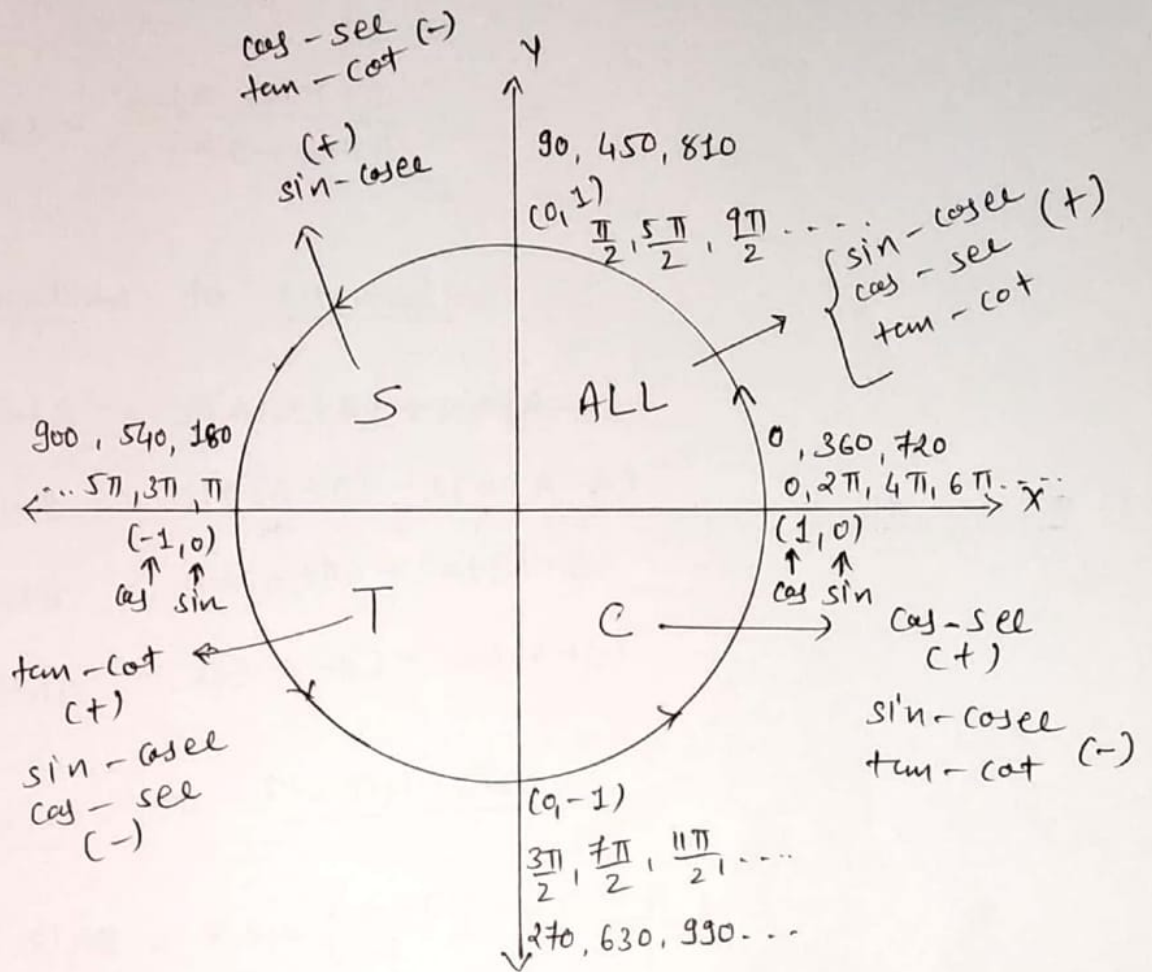 cos - sec (-)
tan - cot
(+)
sin - cosec
Y
90, 450, 810
(0, 1)
π/2, 5π/2, 9π/2 .....
sin - cosec (+)
cos - sec
tan - cot
S
ALL
900, 540, 180
... 5π, 3π, π
(-1, 0)
cos sin
0, 360, 720
0, 2π, 4π, 6π.....
X
(1, 0)
cos sin
T
C
tan - cot
(+)
sin - cosec
cos - sec
(-)
cos - sec
(+)
sin - cosec
tan - cot (-)
(0, -1)
3π/2, 7π/2, 11π/2, ....
270, 630, 990...